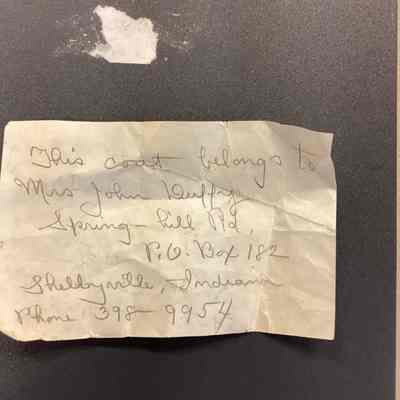 This coat belongs to
Mrs John Duffy
Spring-hill Rd,
P.O. Box 182
Shelbyville, Indiana
Phone 398-9954